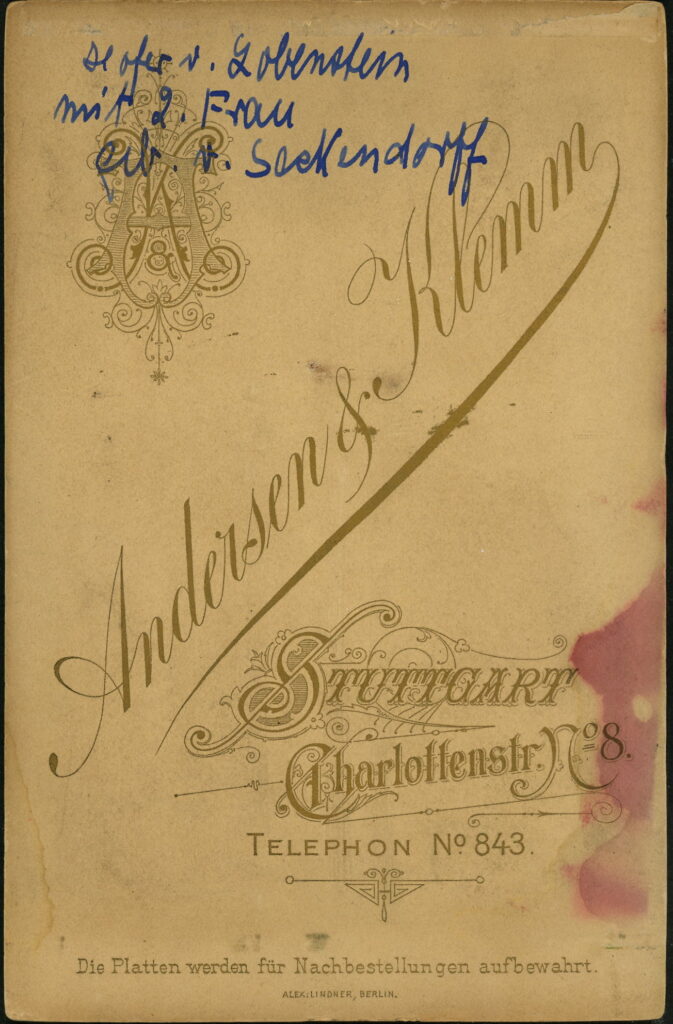 Hofer v. Lobenstein
mit 2. Frau
geb. v. Seckendorff
A & K
Andersen & Klemm
STUTTGART
Charlottenstr. No 8.
TELEPHON No 843.
Die Platten werden für Nachbestellungen aufbewahrt.
ALEX. LINDNER, BERLIN.